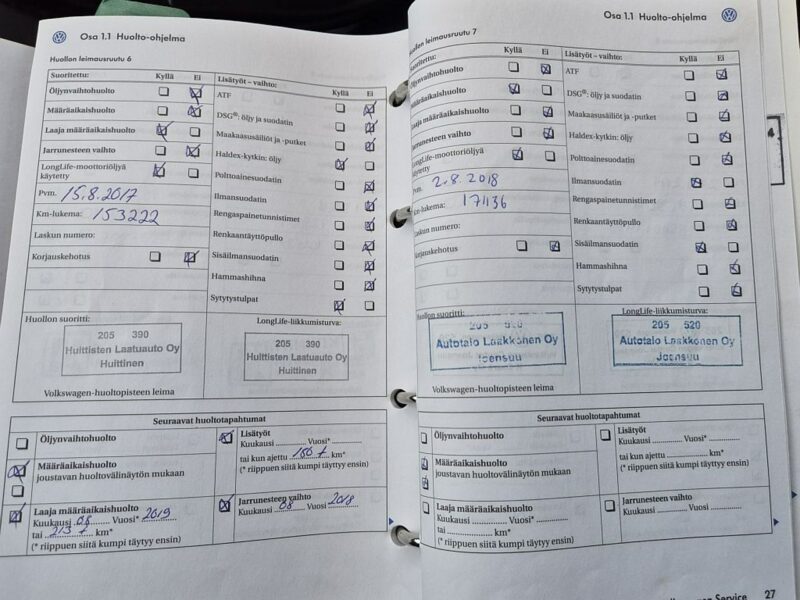 Osa 1.1 Huolto-ohjelma
Huollon leimausruutu 6
Suoritettu: Kyllä Ei
Öljynvaihtohuolto
Määräaikaishuolto
Laaja määräaikaishuolto
Jarrunesteen vaihto
LongLife-moottoriöljyä
käytetty
Pvm. 15.8.2017
Km-lukema: 153222
Laskun numero:
Korjauskehotus
Lisätyöt – vaihto: Kyllä Ei
ATF
DSG®: öljy ja suodatin
Maakaasusäiliöt ja -putket
Haldex-kytkin: öljy
Polttoainesuodatin
Ilmansuodatin
Rengaspainetunnistimet
Renkaantäyttöpullo
Sisäilmansuodatin
Hammashihna
Sytytystulpat
Huollon suoritti:
205 390
Huittisten Laatuauto Oy
Huittinen
LongLife-liikkumisturva:
205 390
Huittisten Laatuauto Oy
Huittinen
Volkswagen-huoltopisteen leima
Seuraavat huoltotapahtumat
Öljynvaihtohuolto
Määräaikaishuolto
joustavan huoltovälinäytön mukaan
Laaja määräaikaishuolto
Kuukausi 08 Vuosi* 2019
tai 213 t km*
(* riippuen siitä kumpi täytyy ensin)
Lisätyöt
Kuukausi Vuosi*
tai kun ajettu 180 t km*
(* riippuen siitä kumpi täytyy ensin)
Jarrunesteen vaihto
Kuukausi 08 Vuosi 2018
Osa 1.1 Huolto-ohjelma
Huollon leimausruutu 7
Suoritettu: Kyllä Ei
Öljynvaihtohuolto
Määräaikaishuolto
Laaja määräaikaishuolto
Jarrunesteen vaihto
LongLife-moottoriöljyä
käytetty
Pvm. 2.8.2018
Km-lukema: 171136
Laskun numero:
Korjauskehotus
Lisätyöt – vaihto: Kyllä Ei
ATF
DSG®: öljy ja suodatin
Maakaasusäiliöt ja -putket
Haldex-kytkin: öljy
Polttoainesuodatin
Ilmansuodatin
Rengaspainetunnistimet
Renkaantäyttöpullo
Sisäilmansuodatin
Hammashihna
Sytytystulpat
Huollon suoritti:
205 520
Autotalo Laakkonen Oy
Joensuu
LongLife-liikkumisturva:
205 520
Autotalo Laakkonen Oy
Joensuu
Volkswagen-huoltopisteen leima
Seuraavat huoltotapahtumat
Öljynvaihtohuolto
Määräaikaishuolto
joustavan huoltovälinäytön mukaan
Laaja määräaikaishuolto
Kuukausi Vuosi*
tai km*
(* riippuen siitä kumpi täytyy ensin)
Lisätyöt
Kuukausi Vuosi*
tai kun ajettu km*
(* riippuen siitä kumpi täytyy ensin)
Jarrunesteen vaihto
Kuukausi Vuosi
Service 27
4